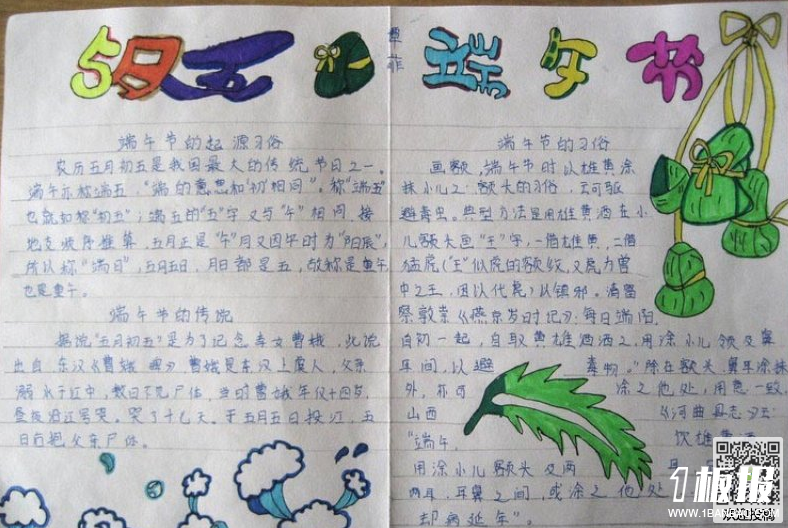 5月五
端午节
章菲
端午节的起源习俗
农历五月初五是我国最大的传统节日之一。
端午亦称端五,"端的意思和"初"相同"。称"端五"
也就如称"初五";端五的"五"字又与"午"相同,按
地支顺序推算,五月正是"午"月又因午时为"阳辰",
所以称"端日",五月五日,月日都是五,故称是重午
也是重午。
端午节的传统
据说"五月初五"是为了纪念孝女曹娥,此说
出自东汉《曹娥 》曹娥是东汉上虞人,父亲
溺水于江中,数日不见尸体,当时曹娥年仅十四岁,
昼夜沿江号哭。哭了十七天。于五月五日投江,五
日后抱父亲尸体。
端午节的习俗
画额,端午节时以雄黄涂
抹小儿之额头的习俗,云可驱
避毒虫。典型方法是用雄黄酒在小
儿额头画"王"字,一借雄黄,二借
猛虎("王"似虎的额纹,又虎为兽
中之王,因以代虎)以镇邪。清富
察敦崇《燕京岁时记》:每日端阳,
自初一起,自取黄雄 酒之,用涂小儿领及鼻
耳间,以避 毒物。"除在额头、鼻耳涂抹
外,亦可 涂之他处,用意一致。
山西 《河曲县志》云:
"端午, 饮雄黄酒
用涂小儿额头及两
两耳,耳鼻之间,或涂之他处
却病延年"。
1板报
WWW.1BANBAO.COM